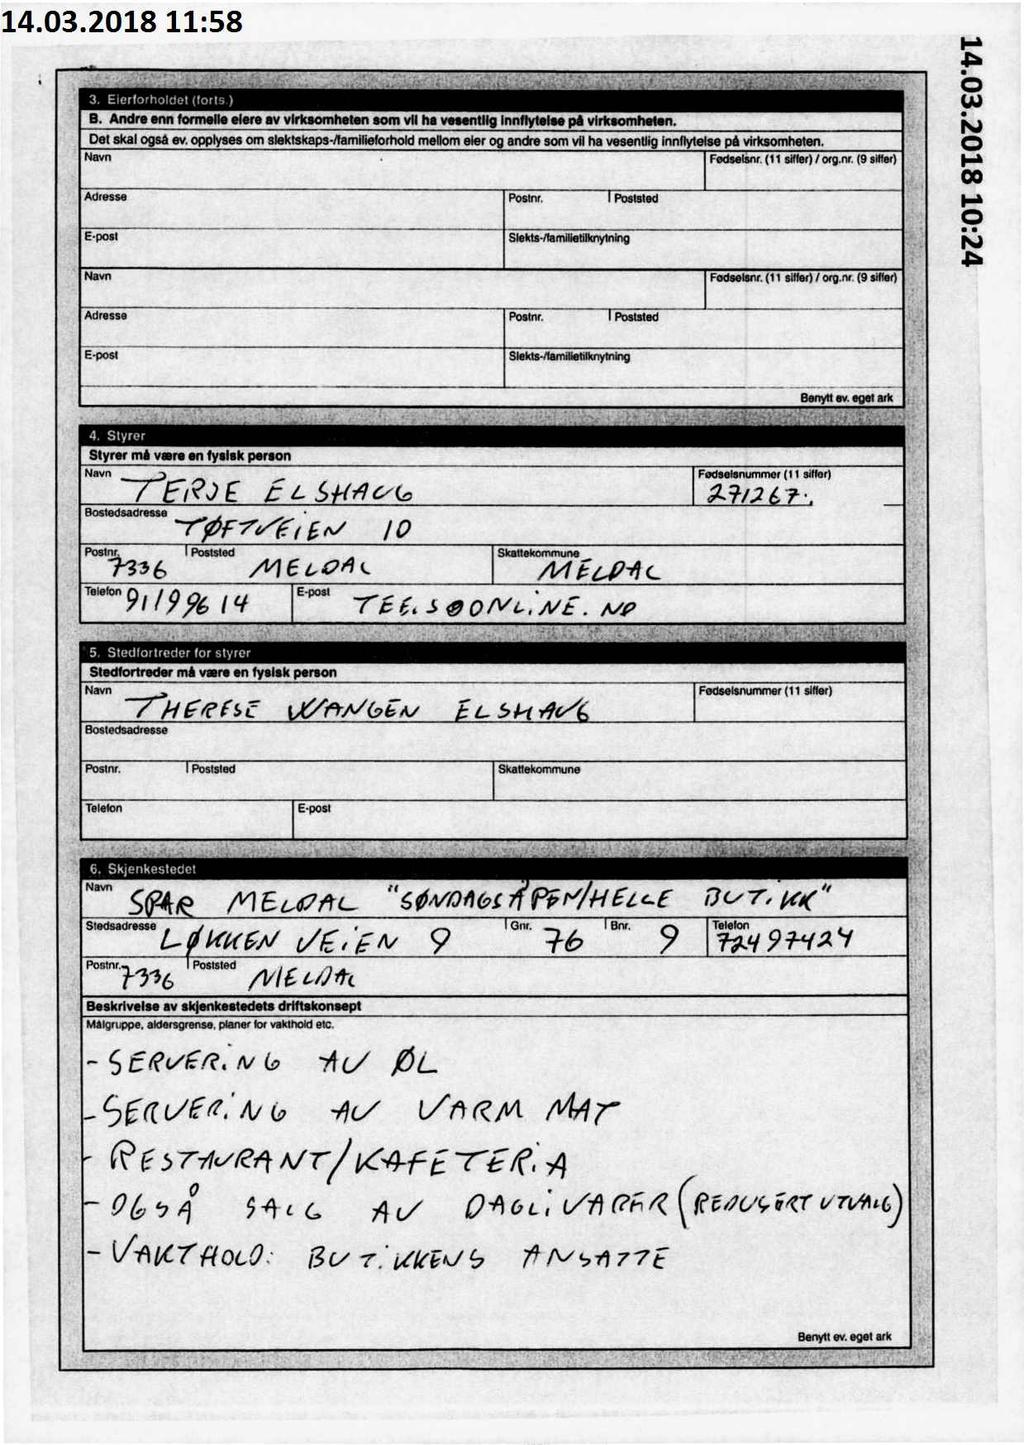 14.03.2018 11:58
14.03.2018 10:24
3. Eierforholdet (forts.)
B. Andre enn formelle eiere av virksomheten som vil ha vesentlig innflytelse på virksomheten.
Det skal også ev. opplyses om slektskaps-/familieforhold mellom eier og andre som vil ha vesentlig innflytelse på virksomheten.
Navn Fødselsnr. (11 siffer) / org.nr. (9 siffer)
Adresse Postnr. Poststed
E-post Slekts-/familietilknytning
Navn Fødselsnr. (11 siffer) / org.nr. (9 siffer)
Adresse Postnr. Poststed
E-post Slekts-/familietilknytning
Benytt ev. eget ark
4. Styrer
Styrer må være en fysisk person
Navn TERJE ELSHAUG Fødselsnummer (11 siffer) 271267
Bostedsadresse TØFTVEIEN 10
Postnr. 7336 Poststed MELDAL Skattekommune MELDAL
Telefon 91199614 E-post TEE.S@ONLINE.NO
5. Stedfortreder for styrer
Stedfortreder må være en fysisk person
Navn THERESE WANGEN ELSHAUG Fødselsnummer (11 siffer)
Bostedsadresse
Postnr. Poststed Skattekommune
Telefon E-post
6. Skjenkestedet
Navn SPAR MELDAL "SØNDAGSÅPEN/HELLE BUTIKK"
Stedsadresse LØKKENVEIEN 9 Gnr. 76 Bnr. 9 Telefon 72497424
Postnr. 7336 Poststed MELDAL
Beskrivelse av skjenkestedets driftskonsept
Målgruppe, aldersgrense, planer for vakthold etc.
- SERVERING AV ØL
- SERVERING AV VARM MAT
- RESTAURANT/KAFETERIA
- OGSÅ SALG AV DAGLIVARER (REDUSERT UTVALG)
- VAKTHOLD: BUTIKKENS ANSATTE
Benytt ev. eget ark